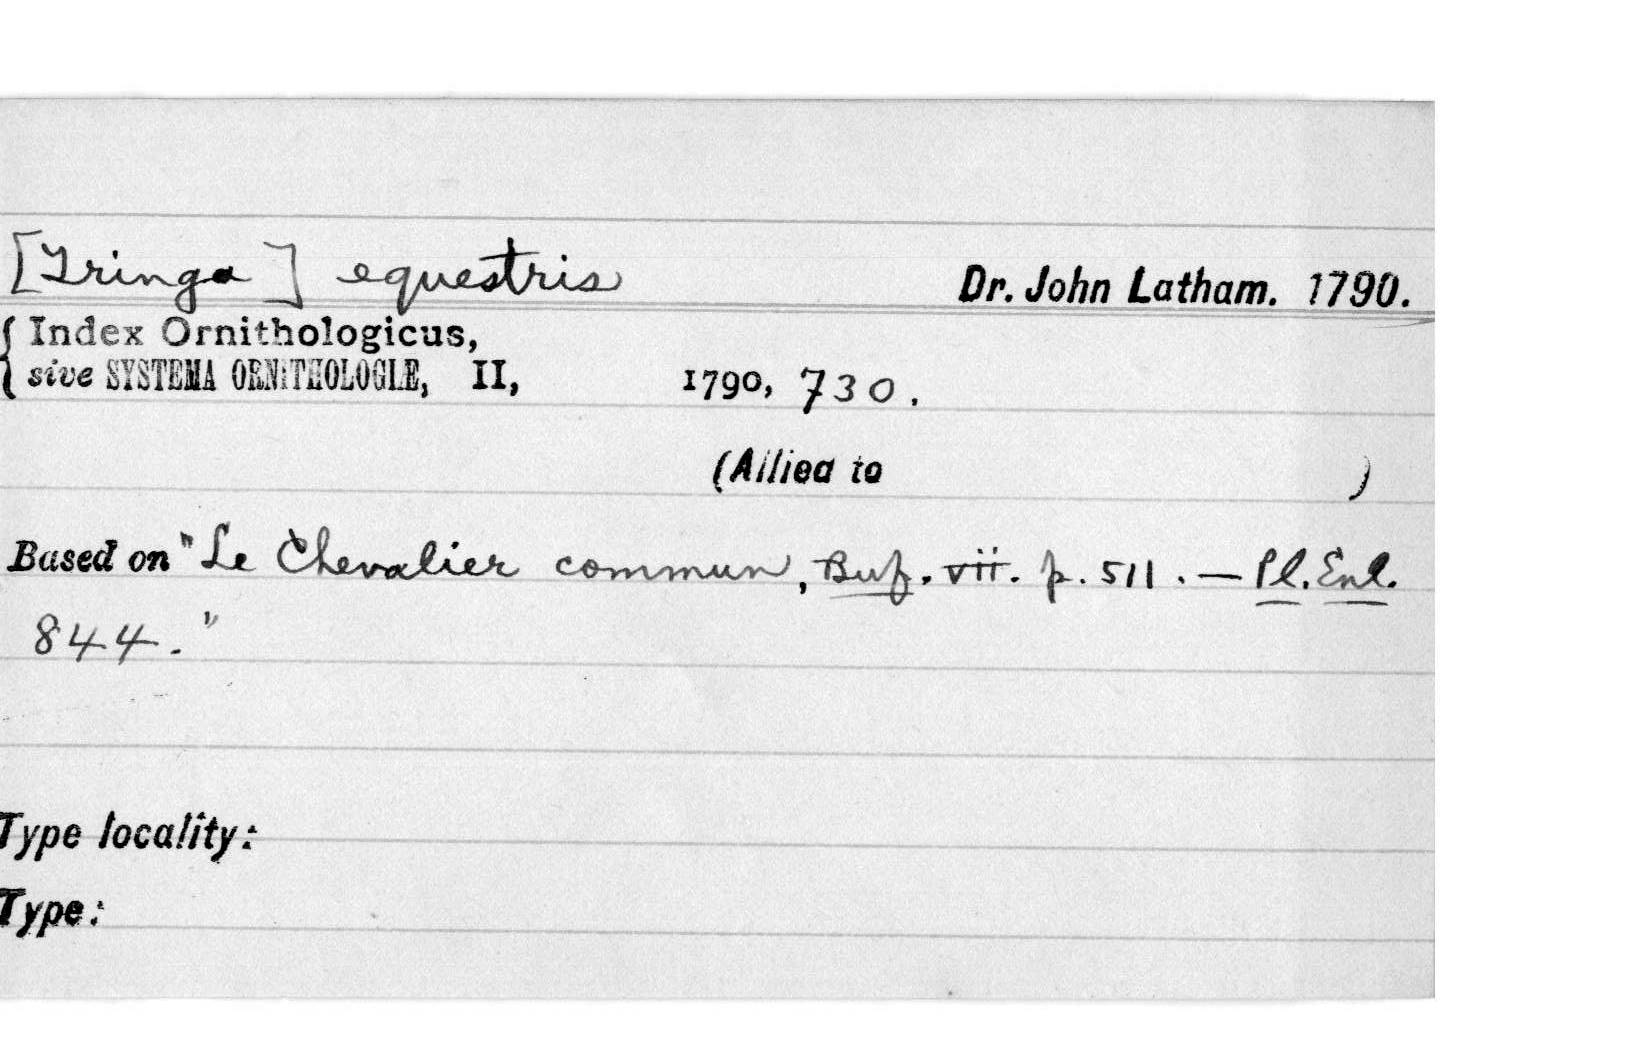 [Tringa] equestris Dr. John Latham. 1790.
{ Index Ornithologicus,
{ sive SYSTEMA ORNITHOLOGIÆ, II, 1790, 730.
(Allied to )
Based on "Le Chevalier commun, Buf. vii. p. 511. — Pl. Enl.
844."
Type locality:
Type: